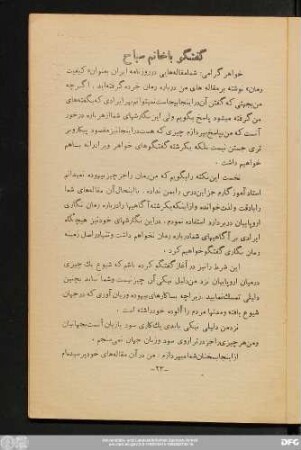 گفتگو با خانم صباح
خواهر گرامی: شما مقاله‌هایی در روزنامه ایران بعنوان «کیفیت
رمان» نوشته بر مقاله های من درباره رمان خرده گرفته‌اید. اگر چه
من بجهتی که گفتن آن در اینجا بیجاست نمیتوانم بهر ایرادی که بگفته‌های
من گرفته میشود پاسخ بگویم ولی این نگارشهای شما از هر باره درخور
آنست که من بپاسخ بپردازم چیزی که هست در اینجا نیز مقصود پیکار و بر
تری جستن نیست بلکه برشته گفتگوهای خواهر و برادرانه بساهم
خواهیم داشت.
نخست این نکته را بگویم که من رمان را جز چیز بیهوده نمیدانم
استاد آموزگارم جز این درس را بمن نداده. با اینحال آن مقاله‌های شما
را با دقت و لذت خوانده و از اینکه یکرشته آگاهیها را درباره رمان نگاری
اروپاییان در بر دارد استفاده نمودم. در این نگارشهای خود نیز هیچگاه
ایرادی بر آگاهیهای شما درباره رمان نخواهم داشت و تنها در اصل زمینه
رمان نگاری گفتگو خواهیم کرد.
این شرط را نیز در آغاز گفتگو کرده باشم که شیوع یک چیزی
درمیان اروپاییان نزد من دلیل نیکی آن چیز نیست و شما نباید بچنین
دلیلی تمسک نمایید. زیرا چه بسا کارهای بیهوده و زیان آوری که در جهان
شیوع یافته و مدتها مردم را آلوده خود داشته است.
نزد من دلیل نیکی یا بدی یک کاری سود یا زیان آنست بجهانیان
و من هر چیزی را جز در ترازوی سود و زیان جهان نمی‌سنجم.
از اینجا بسخنان شما میپردازم. من در آن مقاله‌های خود پرسیده‌ام
-۲۳-